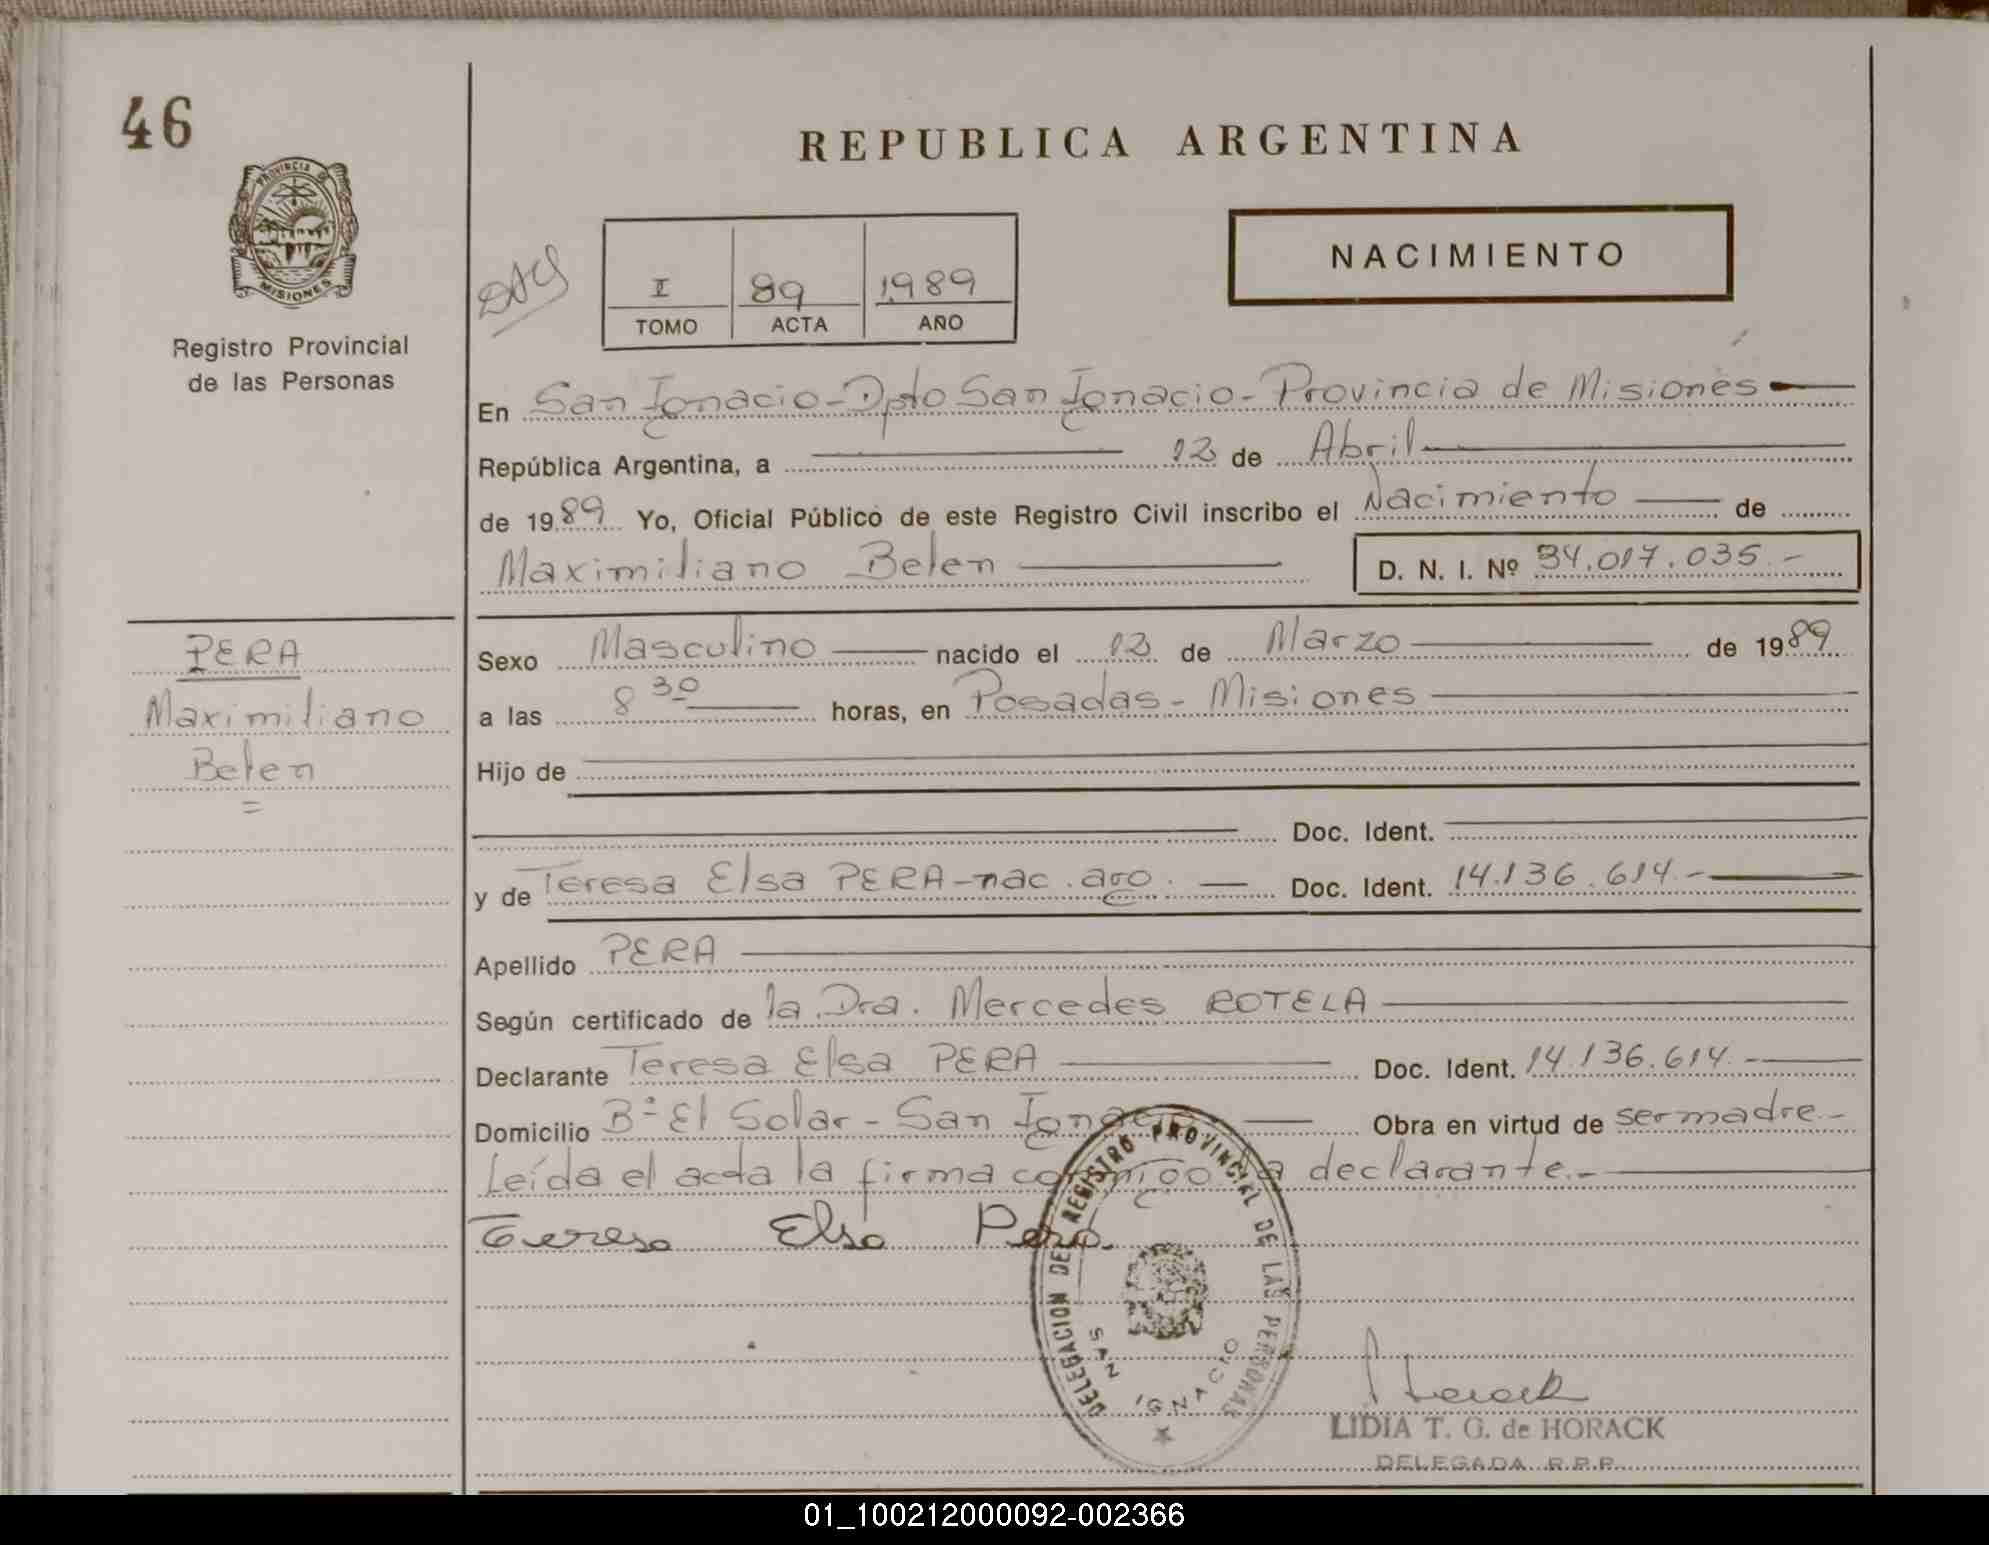 46
PROVINCIA DE
MISIONES
Registro Provincial
de las Personas
REPUBLICA ARGENTINA
NACIMIENTO
I 89 1989
TOMO ACTA AÑO
En San Ignacio - Dpto San Ignacio - Provincia de Misiones
República Argentina, a 12 de Abril
de 1989 Yo, Oficial Público de este Registro Civil inscribo el Nacimiento de
Maximiliano Belen D. N. I. Nº 34.017.035.-
PERA
Maximiliano
Belen
=
Sexo Masculino nacido el 12 de Marzo de 1989
a las 8 30 horas, en Posadas - Misiones
Hijo de
Doc. Ident.
y de Teresa Elsa PERA - nac. arg. Doc. Ident. 14.136.614.-
Apellido PERA
Según certificado de la Dra. Mercedes ROTELA
Declarante Teresa Elsa PERA Doc. Ident. 14.136.614.-
Domicilio Bº El Solar - San Ignacio Obra en virtud de ser madre -
Leída el acta la firma conmigo la declarante.-
Teresa Elsa Pera
DELEGACION DEL REGISTRO PROVINCIAL DE LAS PERSONAS
SAN IGNACIO
Horack
LIDIA T. G. de HORACK
DELEGADA R.P.P.
01_100212000092-002366